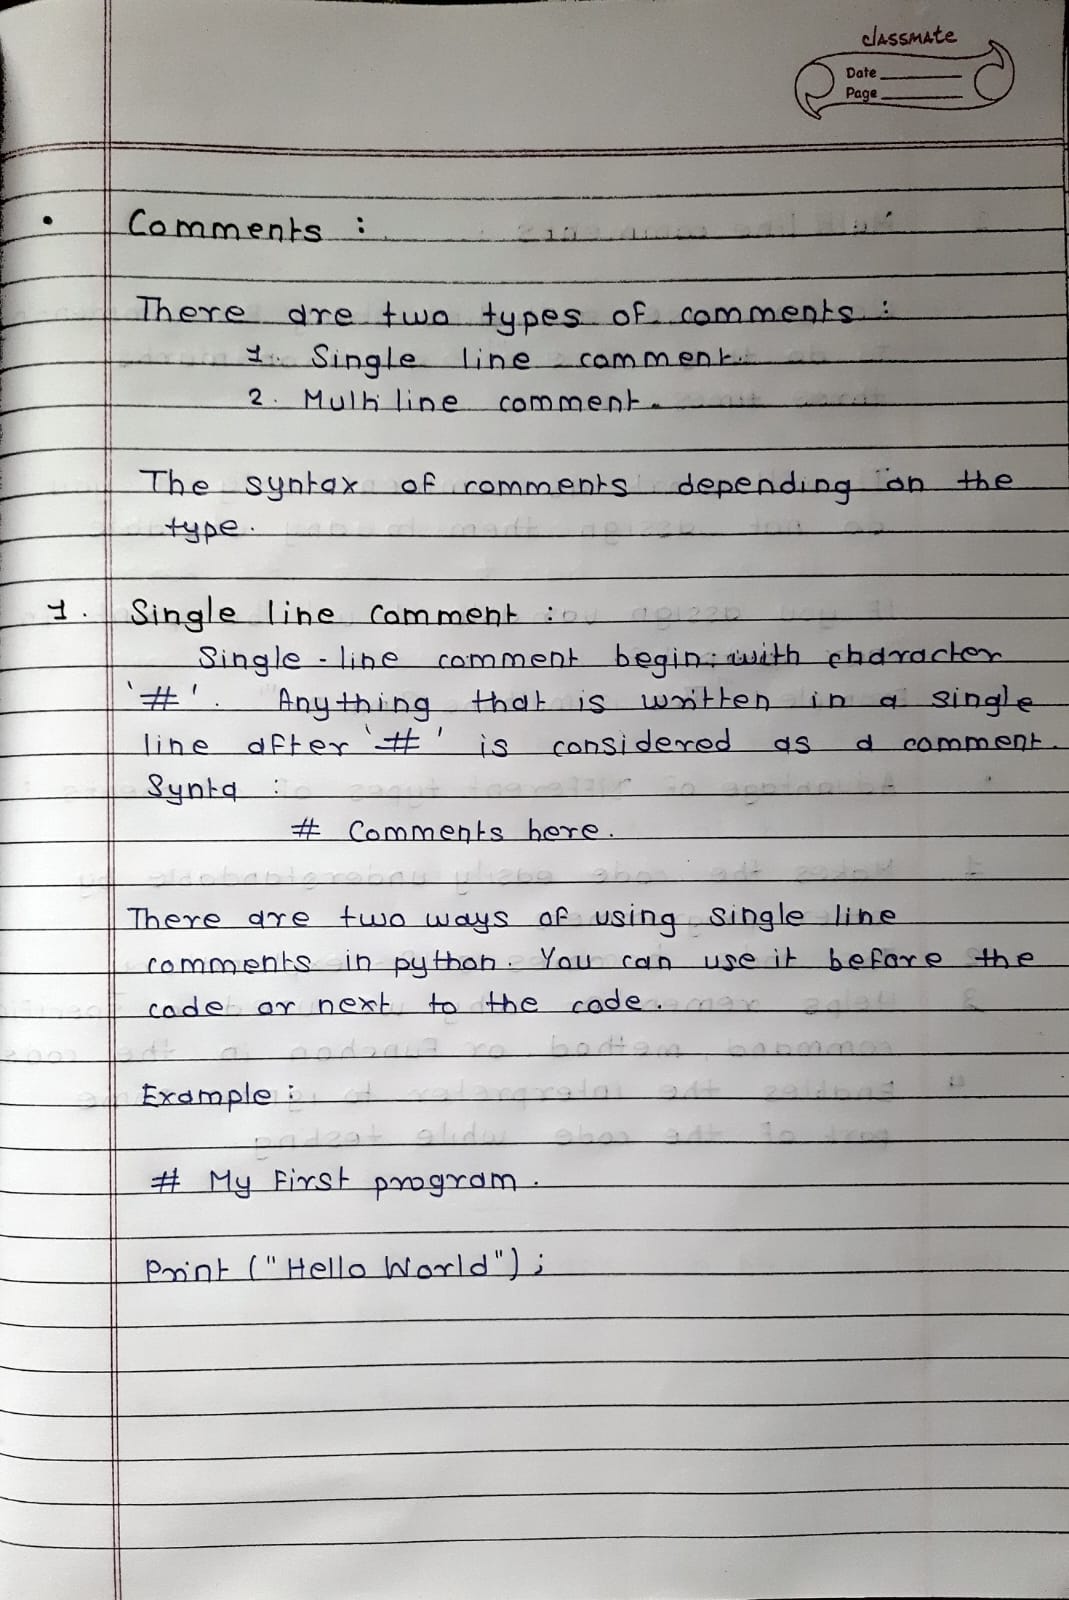 classmate
Date
Page
• Comments :
There are two types of comments :
1. Single line comment.
2. Multi line comment.
The syntax of comments depending on the
type.
1. Single line comment :
Single-line comment begin with character
'#'. Anything that is written in a single
line after '#' is considered as a comment.
Synta :
# Comments here.
There are two ways of using single line
comments in python. You can use it before the
code or next to the code.
Example :
# My First program.
Print ("Hello World") ;